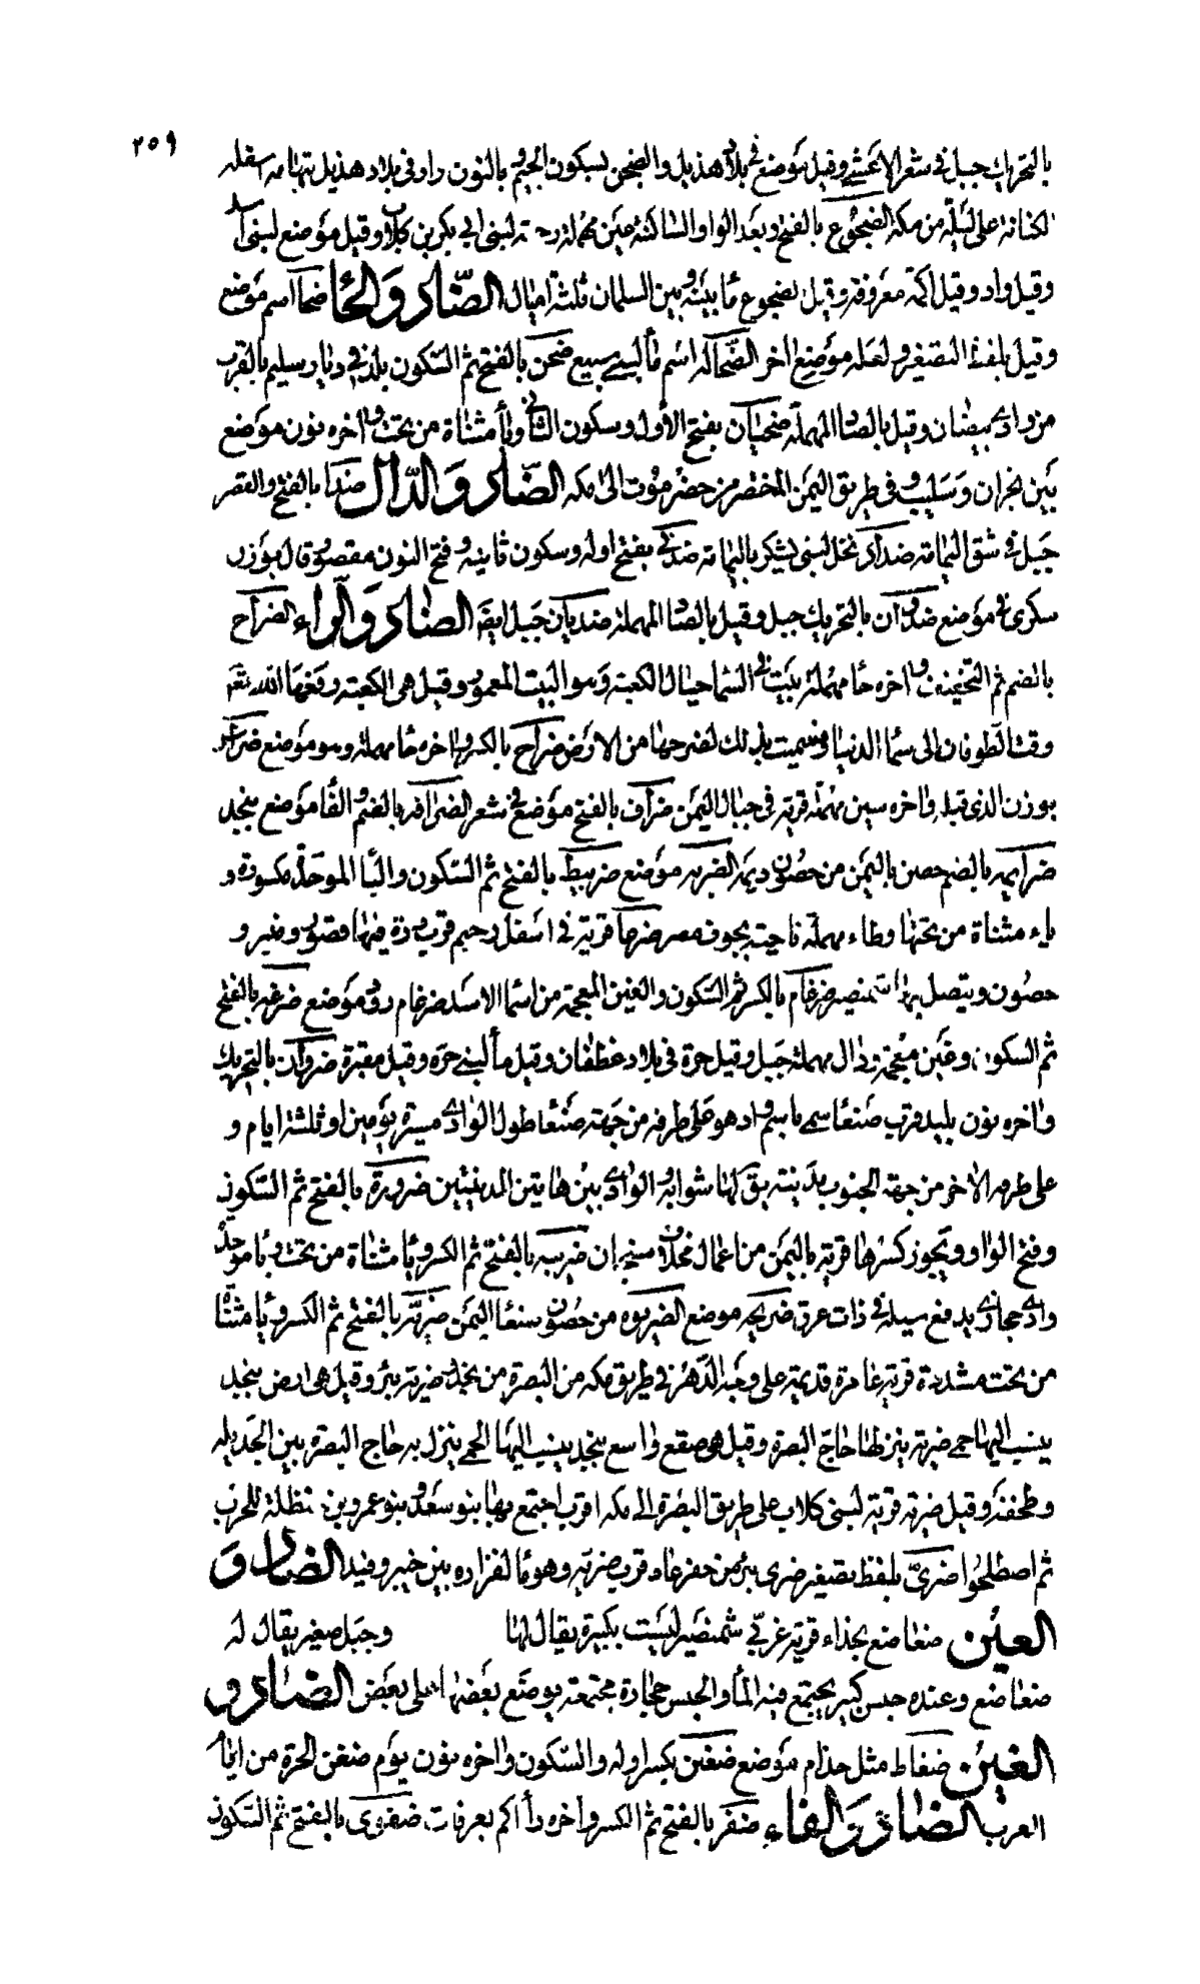 ٢٥٩
بالتحريك جبل في شعر الاعشى وقيل موضع في بلاد هذيل والضجن بسكون الجيم بالنون واد في بلاد هذيل بتهامه اسفله
لكنانة على ليلة من مكة الضجوع بالفتح وبعد الواو الساكنة عين مهملة رحبة لبنى ابي بكر بن كلاب وقيل موضع لبنى اسد
وقيل واد وقيل اكمة معروفة وقيل لضجوع ما بينه وبين السلمان ثلثة اميال الضاد والحا ضحا اسم موضع
وقيل بلفظ التصغير ولعله موضع اخر الضحاكه اسم مأ لبني سبيع ضحن بالفتح ثم السكون بلد في ديار سليم بالقرب
من وادى بيضان وقيل بالصاد المهملة ضحيان بفتح الأول وسكون الثاني ويأ مثناة من تحت واخره نون موضع
بين نجران و في طريق اليمن المختصر من حضرموت الى مكه الضاد والدال ضدا بالفتح والقصر
جبل في شق اليمامة ضدآى نخل لبنى يشكر باليمامة ضدنى بفتح اوله وسكون ثانيه وفتح النون مقصور قال بوزن
سكرى موضع ضدوان بالتحريك جبل وقيل بالصاد المهملة ضديان جبل ايضا الضاد والراء الضراح
بالضم ثم التخفيف واخره حا مهملة بيت في السما حيال الكعبة وهو البيت المعمور وقيل هى الكعبة رفعها الله تعم
وقت الطوفان الى سما الدنيا وسميت بذلك لضرحها من الارض ضراح بالكسر واخره حا مهملة وهو موضع ضراس
بوزن الذى قبله واخره سين مهملة قرية في جبال اليمن ضراف بالفتح موضع في شعر الضرافه بالضم والفا موضع بنجد
بالضم حصن باليمن من حصون ديمه الضربه موضع ضربيط بالفتح ثم السكون والبا الموحدة مكسورة و
ياء مثناة من تحتها وطاء مهملة ناحية بجوف مصر ضرحا قرية في اسفل رخيم قرب ذرة فيها قصور ومنبر و
حصون ويتصل بها شمنصير ضرغام بالكسر ثم السكون والغين المعجمة من اسما الاسد ضرغام روى موضع ضرغد بالفتح
ثم السكون وغين معجمة ودال مهملة جبل وقيل حرة في بلاد غطفان وقيل مأ لبنى مره وقيل مقبرة ضروان بالتحريك
واخره نون بليد قرب صنعا سمى باسم واد هو على طرفه من جهة صنعا طول الوادى مسيرة يومين او ثلثة ايام و
على طرفه الاخر من جهة الجنوب مدينة يق لها شوابه والوادى بين هاتين المدينتين ضرورة بالفتح ثم السكون
وفتح الواو ويجوز كسرها قرية باليمن من اعمال مخلاف سنحان ضريبه بالفتح ثم الكسر ويا مثناة من تحت وبا موحدة
وادى حجازى يدفع سيله في ذات عرق ضريحه موضع الضريوه من حصون صنعا اليمن ضرية بالفتح ثم الكسر ويا مثناة
من تحت مشددة قرية عامرة قديمة على وجه الدهر في طريق مكه من البصرة من نجد ضرية بئر وقيل هى ارض بنجد
ينسب اليها حمى ضرية ينزلها حاج البصرة وقيل هو صقع واسع بنجد ينسب اليها الحمى ينزل به حاج البصرة بين الجديله
وطخفة وقيل ضرية قرية لبنى كلاب على طريق البصرة الى مكه اقرب اجتمع بها بنو سعد وبنو عمرو بن حنظلة للحرب
ثم اصطلحوا ضرىّ بلفظ تصغير ضرى بئر من حفر عاد قرب ضرية وهو ما لفزاره بين خيبر وفيد الضاد و
العين ضعاضع بحذاء قرية غربي شمنصير ليست بكبيرة يقال لها وجبل صغير يقال له
ضعاضع وعنده حبس كبير يجتمع فيه المأ والحبس حجارة مجتمعة يوضع بعضها على بعض الضاد و
الغين ضغاط مثل حذام موضع ضغن بكسر اوله والسكون واخره نون يوم ضغن الحرة من ايام
العرب الضاد والفاء ضفر بالفتح ثم الكسر واخره رأ اكم بعرفات ضفوى بالفتح ثم السكون